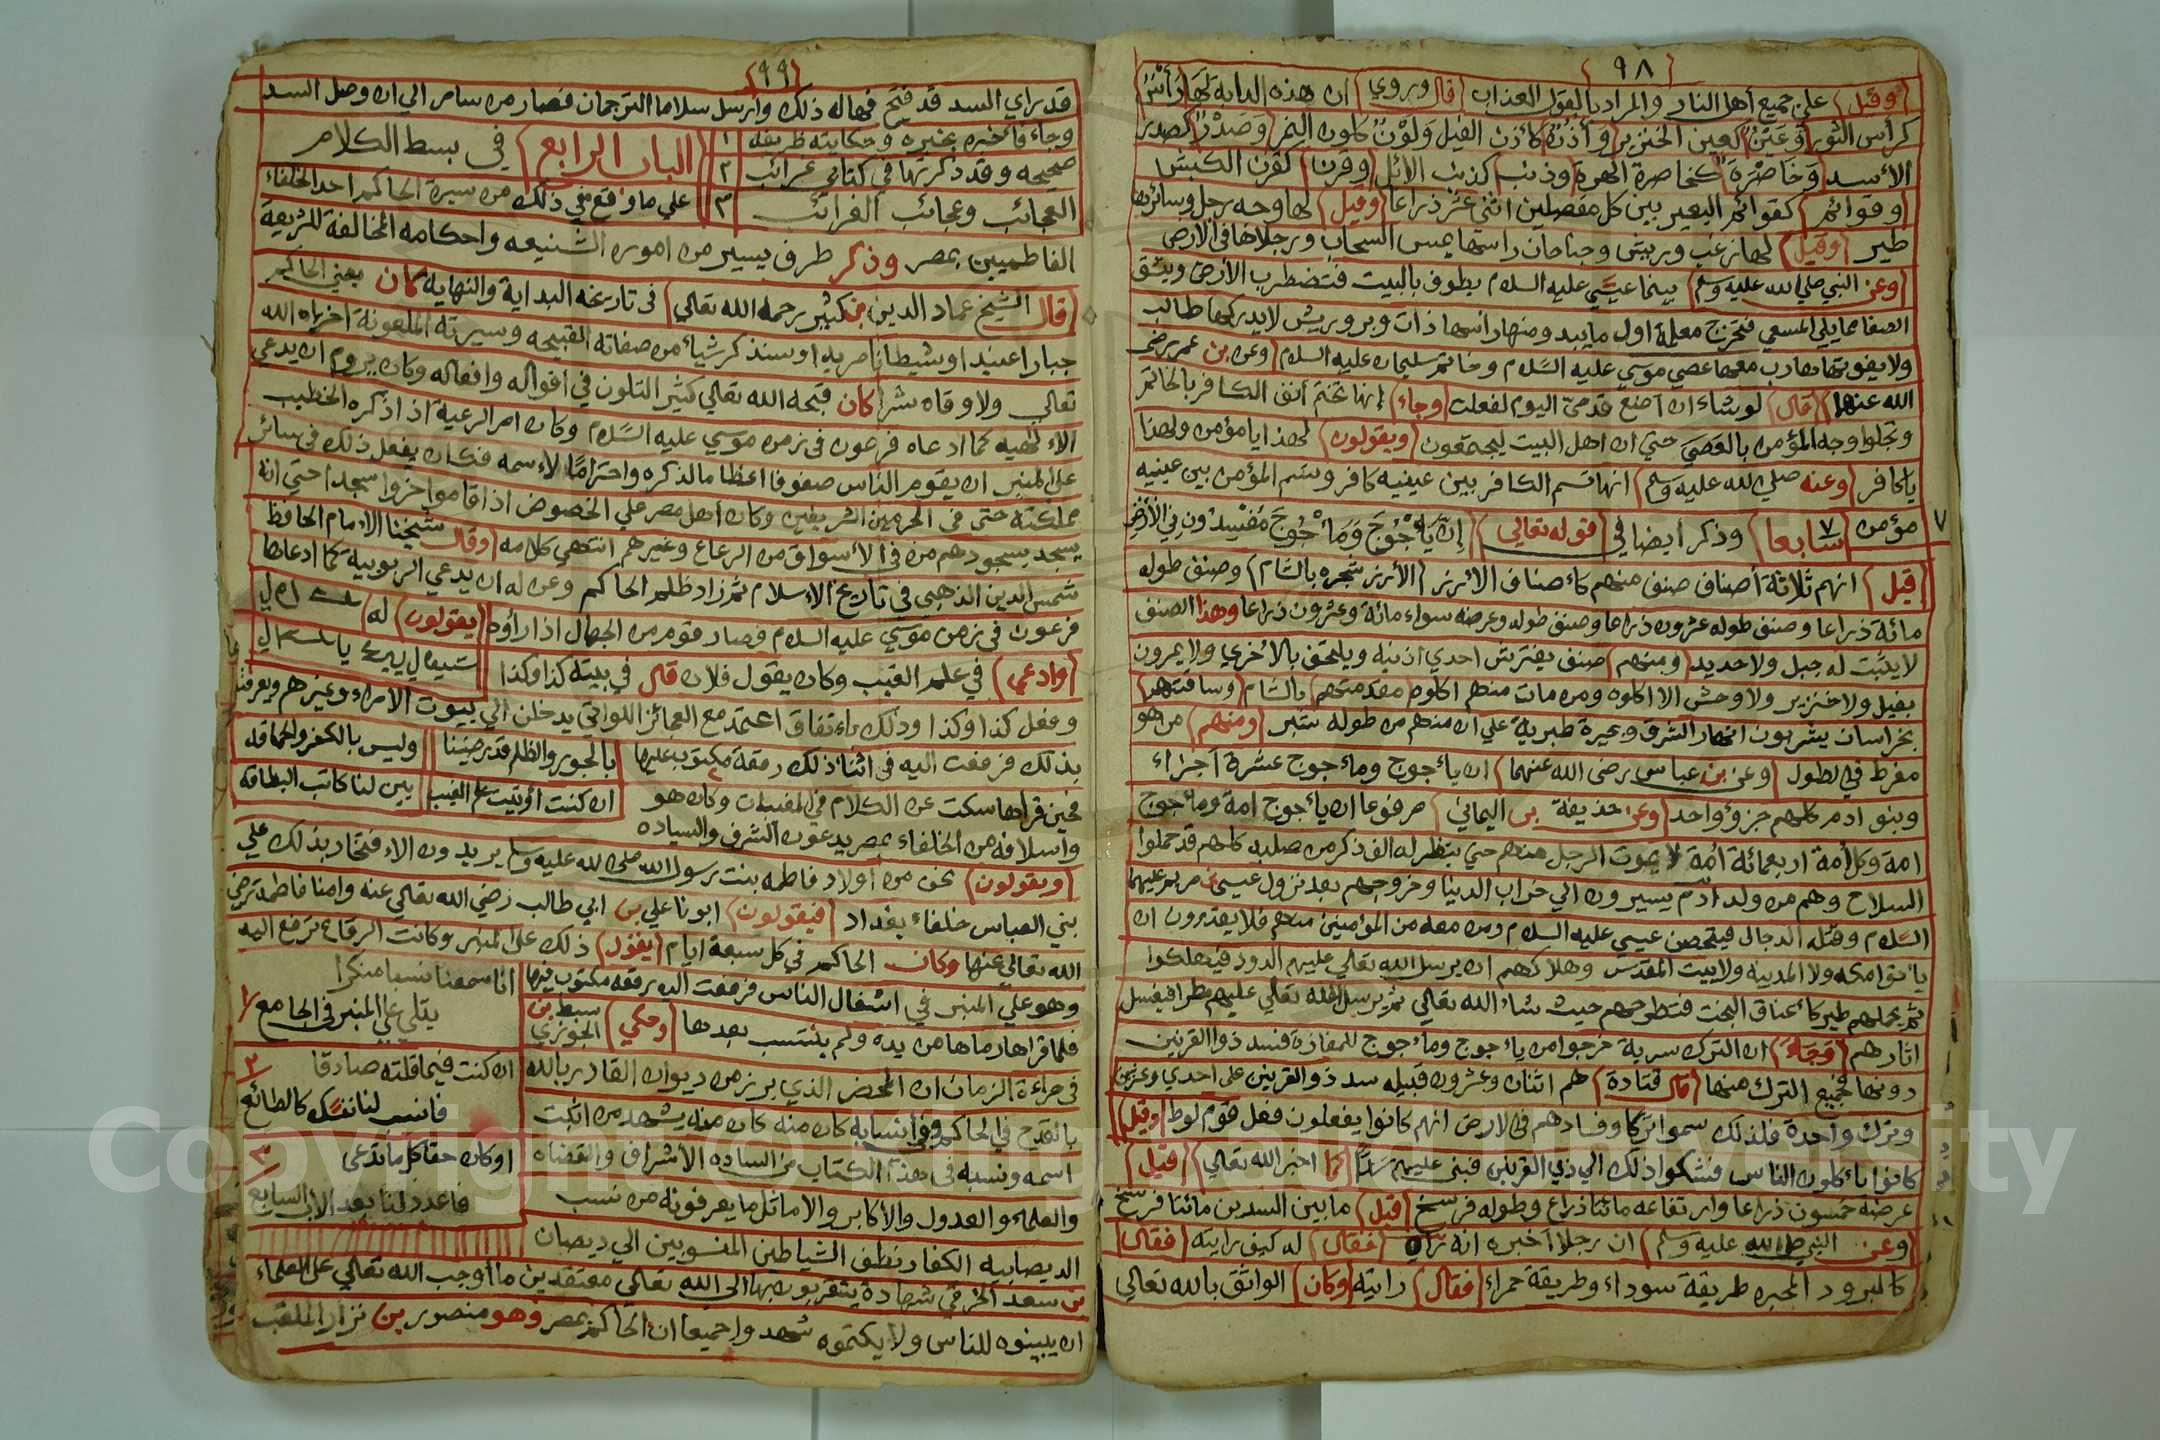 ٩٨
وقيل على جميع أهل النار والمراد بالقول العذاب قال ويروي ان هذه الدابة لها رأس
كرأس الثور وعين كعين الخنزير وأذن كأذن الفيل ولون كلون النمر وصدر كصدر
الأسد وخاصرة كخاصرة الهرة وذنب كذنب الائل وقرن كقرن الكبش
وقوائم كقوائم البعير بين كل مفصلين اثنى عشر ذراعا وقيل لها وجه رجل وسائرها
طير وقيل لها زغب وريش وجناحان راسها يمس السحاب ورجلاها في الارض
وعن النبي صلي الله عليه وسلم بينما عيسي عليه السلام يطوف بالبيت فتضطرب الأرض وينشق
الصفا مما يلي المسعي فتخرج معلمة اول ما يبد ومنها راسها ذات وبر وريش لا يدركها طالب
ولا يفوتها هارب معها عصي موسي عليه السلام وخاتم سليمان عليه السلام وعن بن عمر رضي
الله عنهما قال لو شاء ان أضع قدمي اليوم لفعلت وجاء انها تختم أنف الكافر بالخاتم
وتجلوا وجه المؤمن بالعصي حتي ان اهل البيت ليجتمعون ويقولون لهذا يا مؤمن ولهذا
يا كافر وعنه صلي الله عليه وسلم انها تسم الكافر بين عينيه كافر وتسم المؤمن بين عينيه
مؤمن ٧ سابعا وذكر أيضا في قوله تعالي إن يأجوج ومأجوج مفسدون في الأرض
٧
قيل انهم ثلاثة أصناف صنف منهم كأصناف الارز الأرز شجره بالشام وصنف طوله
مائة ذراعا وصنف طوله عشرون ذراعا وصنف طوله وعرضه سواء مائة وعشرون ذراعا وهذا الصنف
لا يثبت له جبل ولا حديد ومنهم صنف يفترش احدي اذنيه ويلتحق بالأخري ولا يمرون
بفيل ولا خنزير ولا وحش الا اكلوه ومن مات منهم اكلوه مقدمتهم بالشام وساقتهم
بخراسان يشربون انهار الشرق وبحيرة طبرية علي ان منهم من طوله شبر ومنهم من هو
مفرط في الطول وعن بن عباس رضي الله عنهما ان يأجوج ومأجوج عشرة أجزاء
وبنوا ادم كلهم جزؤ واحد وعن حذيفة بن اليماني مرفوعا ان يأجوج امة ومأجوج
امة وكل أمة اربعمائة أمة لا يموت الرجل منهم حتي ينظر له الف ذكر من صلبه كلهم قد حملوا
السلاح وهم من ولد ادم يسيرون الي خراب الدنيا وخروجهم بعد نزول عيسي بن مريم عليهما
السلام وقتله الدجال فيتحصن عيسي عليه السلام ومن معه من المؤمنين منهم فلا يقدرون ان
ياتوا مكه ولا المدينه ولا بيت المقدس وهلاكهم ان يرسل الله تعالي عليهم الدود فيهلكوا
ثم يحملهم طير كأعناق البخت فتطرحهم حيث شاء الله تعالي ثم يرسل الله تعالي عليهم مطرا فيغسل
اثارهم وجاء ان الترك سرية خرجوا من يأجوج ومأجوج للمغازة فسد ذوا القرنين
دونها فجميع الترك منها قال قتادة هم اثنان وعشرون قبيله سد ذو القرنين على احدي وعشرين
وترك واحدة فلذلك سموا تركا وفسادهم في الارض انهم كانوا يفعلون فعل قوم لوط وقيل
كانوا يأكلون الناس فشكوا ذلك الي ذي القرنين فبنى عليهم سدا كما اخبر الله تعالي قيل
عرضه خمسون ذراعا وارتفاعه مائتا ذراع وطوله فرسخ قيل ما بين السدين مائتا فرسخ
وعن النبي صلى الله عليه وسلم ان رجلا أخبره انه رأي فقال له كيف رايته فقال
كالبرود المحبره طريقة سوداء وطريقة حمراء فقال رايته وكان الواثق بالله تعالي
٩٩
قد راي السد قد فتح فهاله ذلك وأرسل سلاما الترجمان فصار من سامر الي ان وصل السد
وجاء فأخبره بخبره وحكايته ظريفه ١
صحيحه وقد ذكرتها في كتابي غرائب ٢
العجائب وعجائب الغرائب ٣
الباب الرابع في بسط الكلام
علي ما وقع في ذلك من سيرة الحاكم احد الخلفاء
الفاطميين بمصر وذكر طرف يسير من اموره الشنيعه واحكامه المخالفة للشريعة
قال الشيخ عماد الدين بن كثير رحمه الله تعالي في تاريخه البداية والنهاية كان يعني الحاكم
جبارا عنيدا وشيطانا مريدا وسنذكر شيأ من صفاته القبيحه وسيرته الملعونة اخزاه الله
تعالي ولا وقاه شرا كان قبحه الله تعالي كثير التلون في اقواله وافعاله وكان يروم ان يدعي
الالهيه كما ادعاه فرعون في زمن موسي عليه السلام وكان امر الرعية اذا ذكره الخطيب
على المنبر ان يقوم الناس صفوفا اعظاما لذكره واحتراما لاسمه فكان يفعل ذلك في سائر
مملكته حتي في الحرمين الشريفين وكان أهل مصر علي الخصوص اذا قاموا خروا سجدا حتي انه
يسجد بسجودهم من في الأسواق من الرعاع وغيرهم انتهي كلامه وقال شيخنا الامام الحافظ
شمس الدين الذهبي في تاريخ الاسلام ثم زاد ظلم الحاكم وعن له ان يدعي الربوبية كما ادعاها
فرعون في زمن موسي عليه السلام فصار قوم من الجهال اذا رأوه يقولون له
وادعي في علم الغيب وكان يقول فلان قال في بيته كذا وكذا
وفعل كذا وكذا وذلك باتفاق اعتمد مع العجائز اللواتي يدخلن الي بيوت الامراء وغيرهم ويعرفنه
بذلك فرفعت اليه في اثناء ذلك رقعة مكتوب عليها
بالجور والظلم قد رضينا
وليس بالكفر والحماقه
ان كنت أوتيت علم الغيب
بين لنا كاتب البطاقه
فحين قراها سكت عن الكلام في المغيبات وكان هو
واسلافه من الخلفاء بمصر يدعون الشرف والسياده
ويقولون نحن من أولاد فاطمه بنت رسول الله صلى الله عليه وسلم يريدون الافتخار بذلك علي
بني العباس خلفاء بغداد فيقولون ابونا علي بن ابي طالب رضي الله تعالي عنه وامنا فاطمة رضي
الله تعالي عنها وكان الحاكم في كل سبعة ايام يقول ذلك علي المنبر وكانت الرقاع ترفع اليه
وهو علي المنبر في اشغال الناس فرفعت اليه رقعه مكتوب فيها
انا سمعنا نسبا منكرا
يتلي علي المنبر في الجامع ١
ان كنت فيما قلته صادقا ٢
فانسب لنا نفسك كالطائع
او كان حقا كل ما تدعي ٣
فاعدد لنا بعد الاب السابع
فلما قراها رماها من يده ولم ينتسب بعدها وحكي سبط بن الجوزي
في مراءة الزمان ان المحضر الذي برز من ديوان القادر بالله
بالقدح في الحاكم وفي أنسابه كان منه كان منه يشهد من اثبت
اسمه ونسبه في هذا الكتاب من الساده الأشراف والقضاه
والعلماء والعدول والاكابر والاماثل ما يعرفونه من نسب
الديصانيه الكفار نطف الشياطين المنسوبين الي ديصان
بن سعد الخرقي شهادة يتقربون بها الي الله تعالي معتقدين ما أوجب الله تعالي على العلماء
ان يبينوه للناس ولا يكتموه شهدوا جميعا ان الحاكم بمصر وهو منصور بن نزار الملقب
Copyright © King Saud University